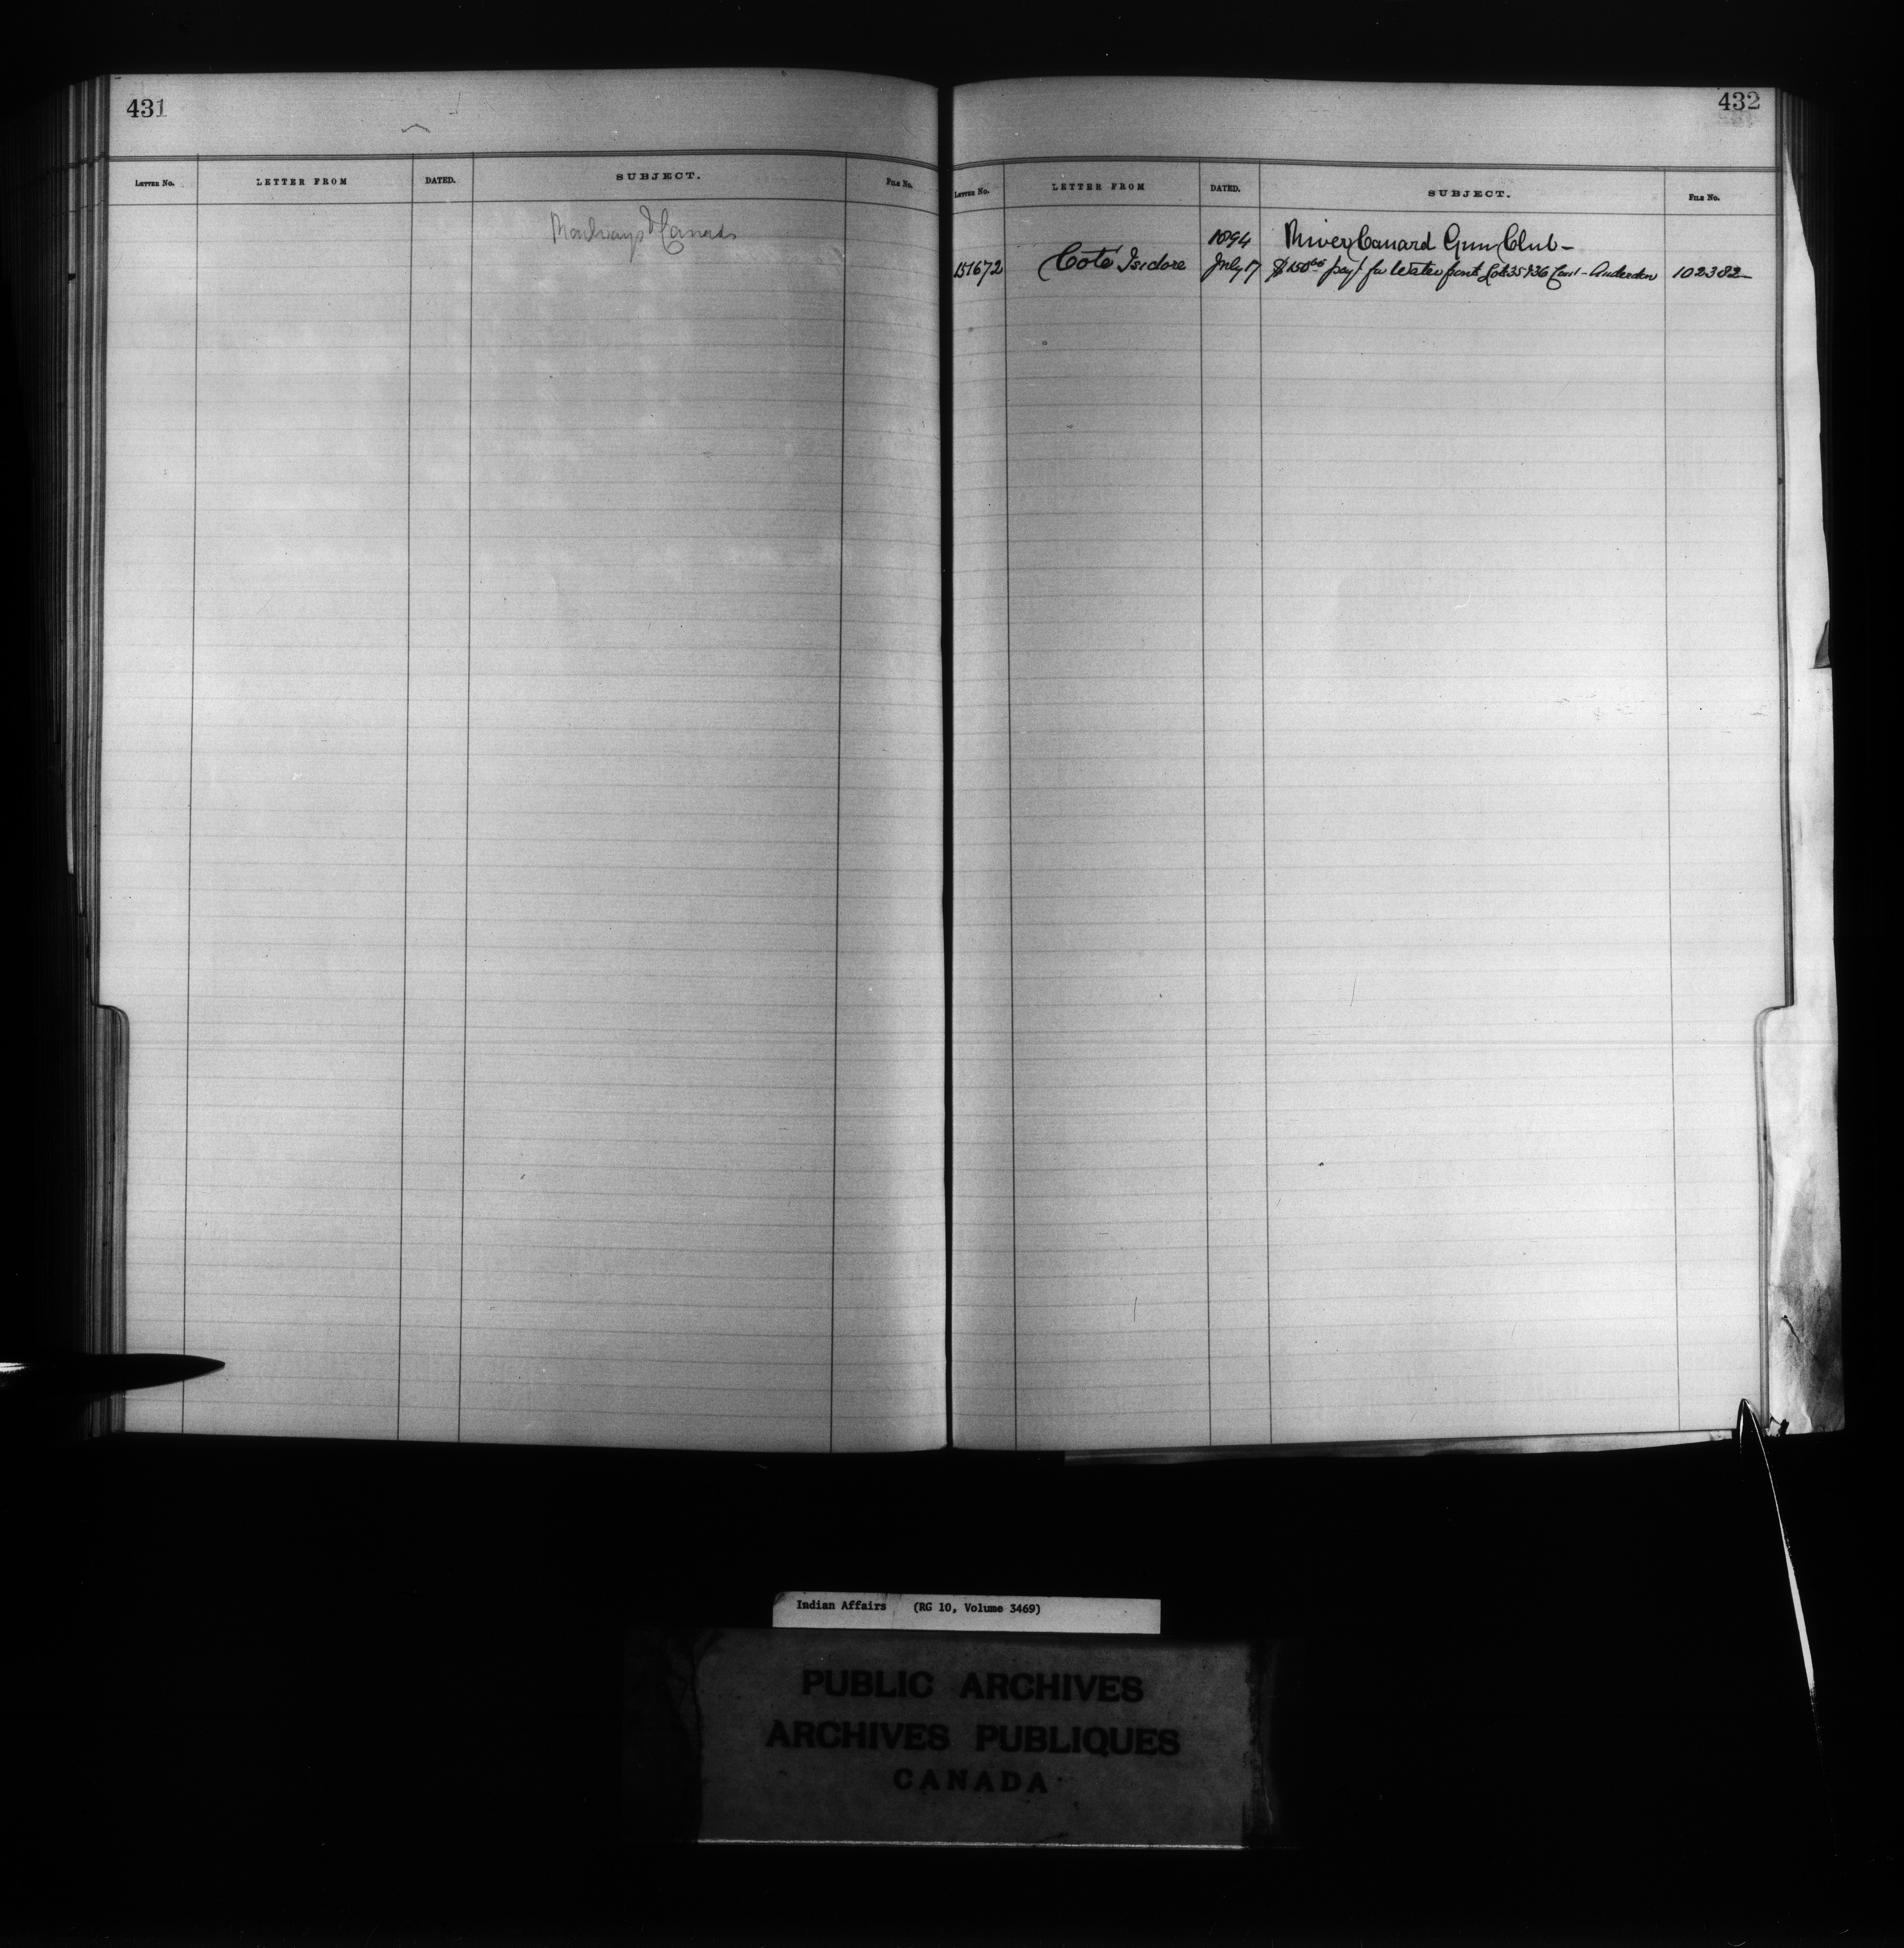 431
LETTER NO. LETTER FROM DATED. SUBJECT. FILE NO.
Canada
432
LETTER NO. LETTER FROM DATED. SUBJECT. FILE NO.
1894 River Canard Gun Club -
151672 Cote Isidore July 17 $150 pay't for Water front Lots 35 & 36 Con 1 - Anderdon 102382
Indian Affairs (RG 10, Volume 3469)
PUBLIC ARCHIVES
ARCHIVES PUBLIQUES
CANADA